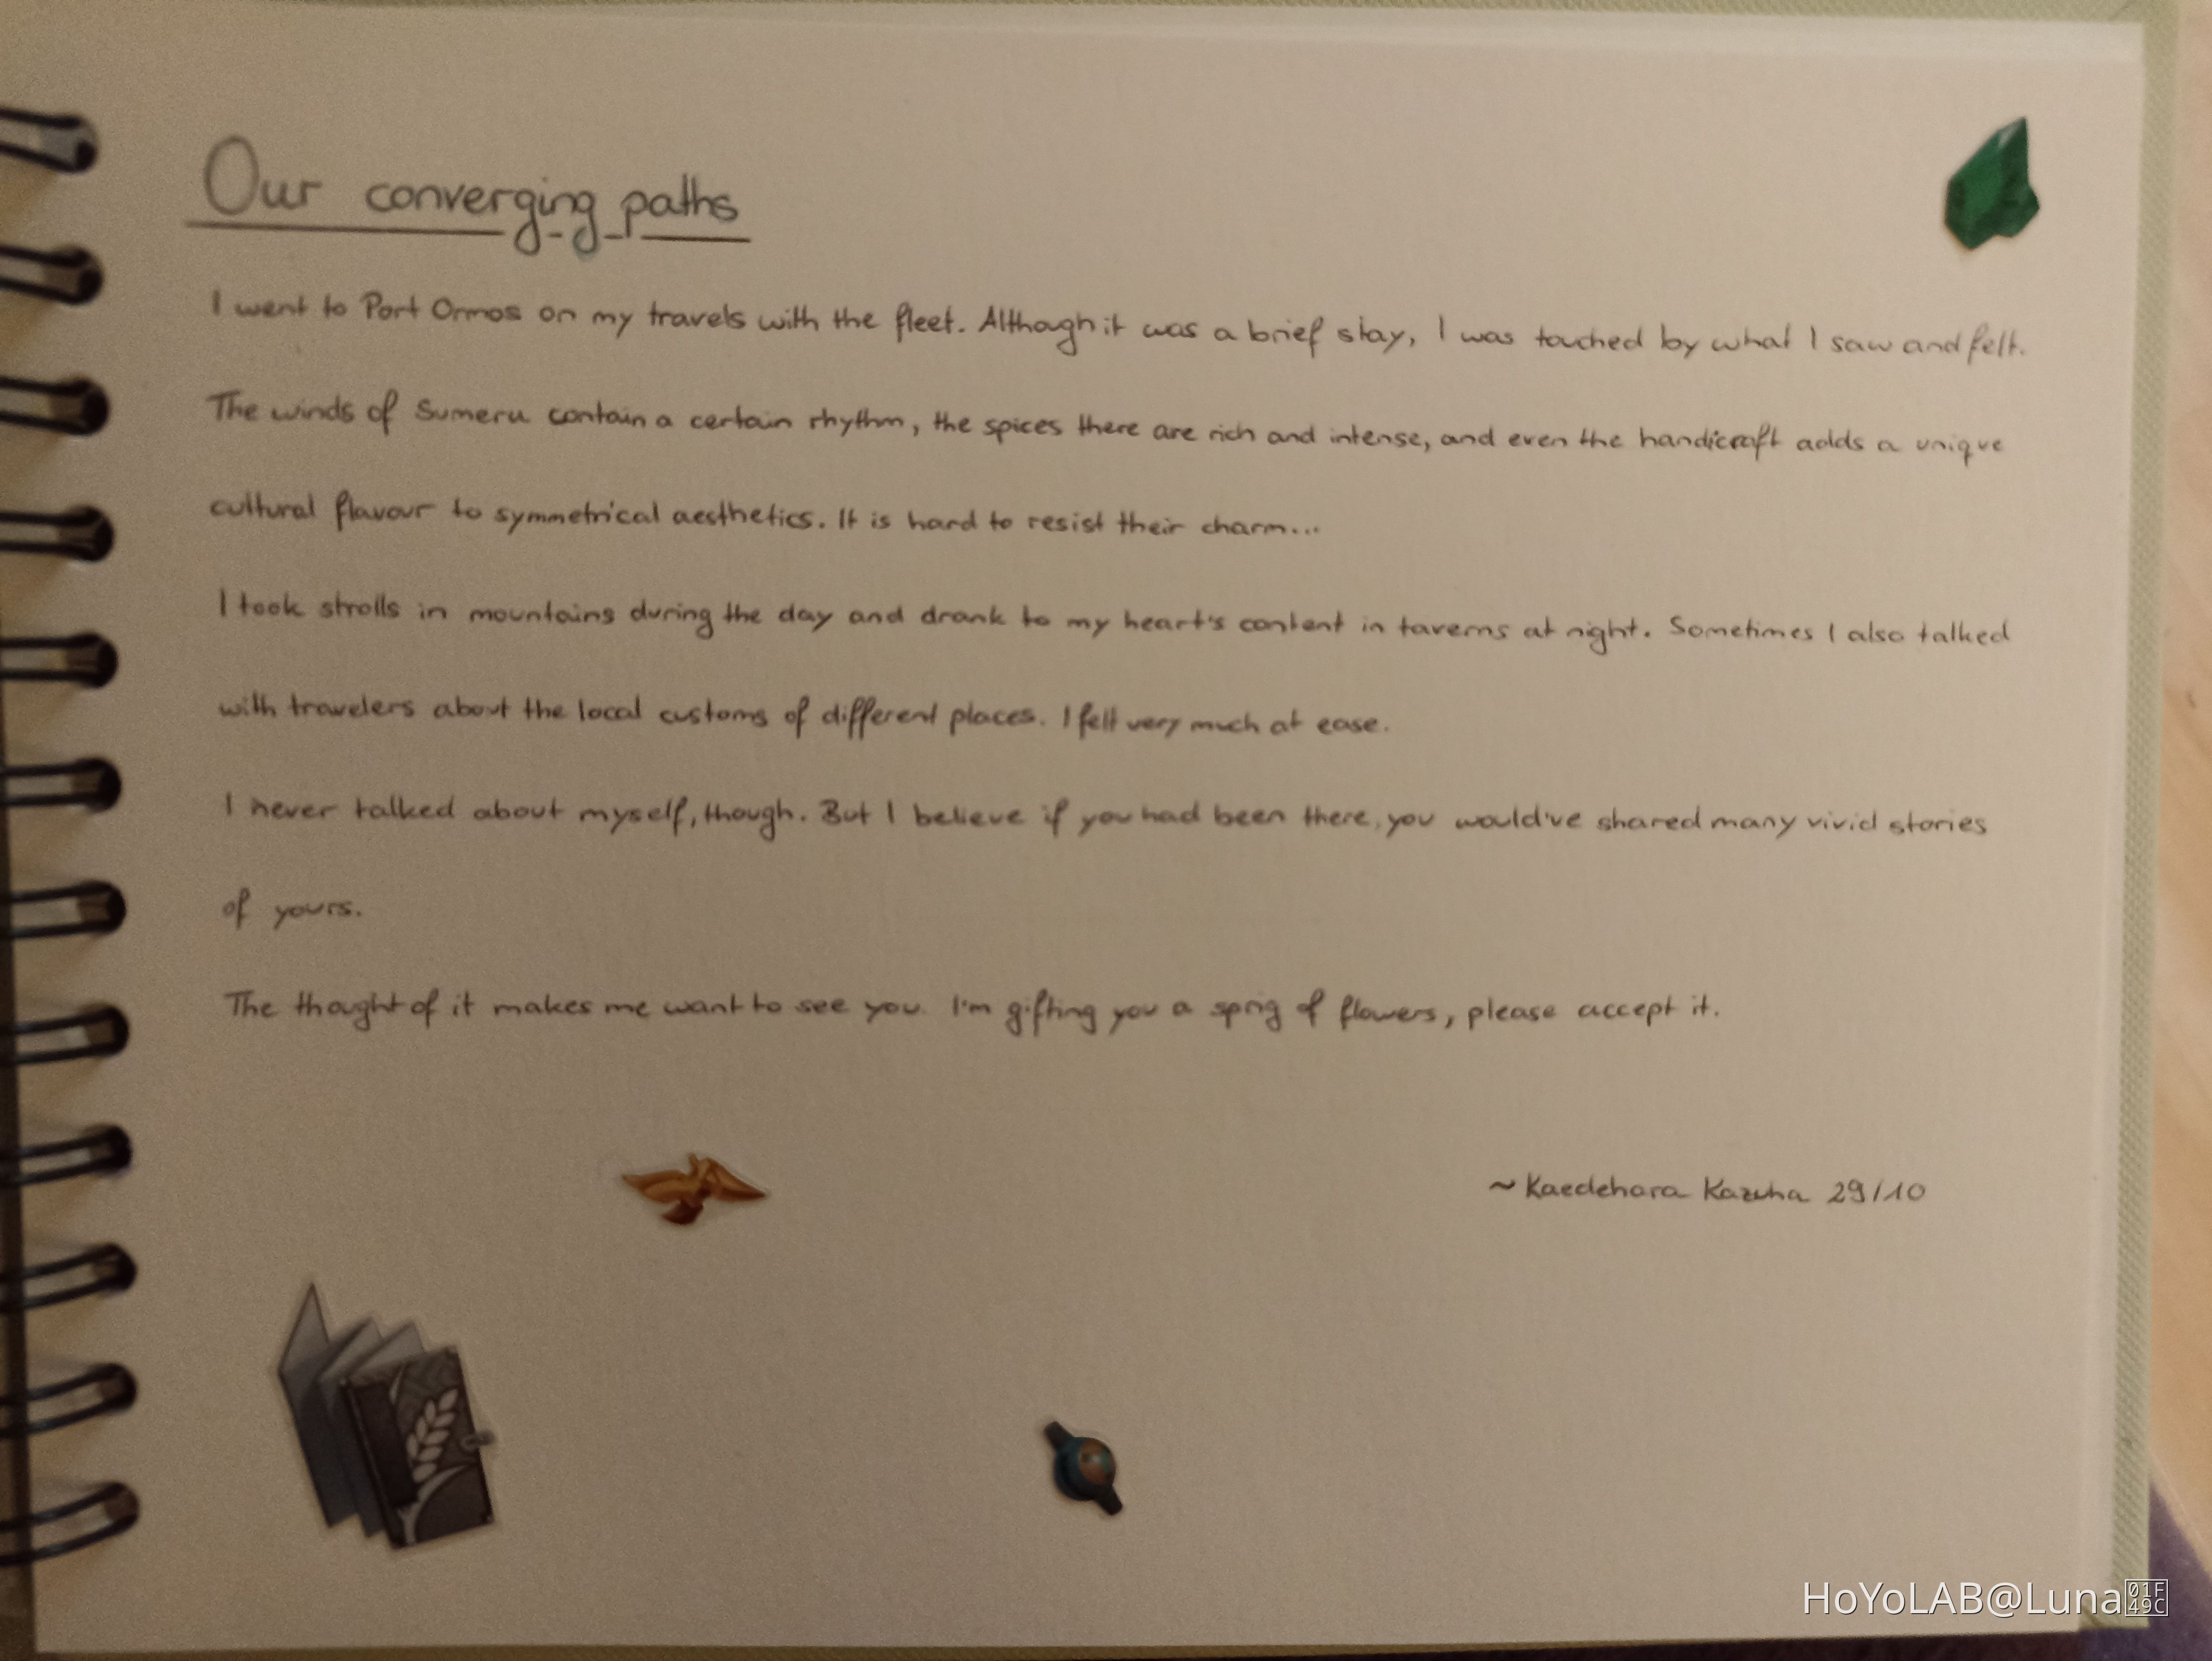 Our converging paths
I went to Port Ormos on my travels with the fleet. Although it was a brief stay, I was touched by what I saw and felt.
The winds of Sumeru contain a certain rhythm, the spices there are rich and intense, and even the handicraft adds a unique
cultural flavour to symmetrical aesthetics. It is hard to resist their charm...
I took strolls in mountains during the day and drank to my heart's content in taverns at night. Sometimes I also talked
with travelers about the local customs of different places. I felt very much at ease.
I never talked about myself, though. But I believe if you had been there, you would've shared many vivid stories
of yours.
The thought of it makes me want to see you. I'm gifting you a sprig of flowers, please accept it.
~Kaedehara Kazuha 29/10
HoYoLAB@Luna